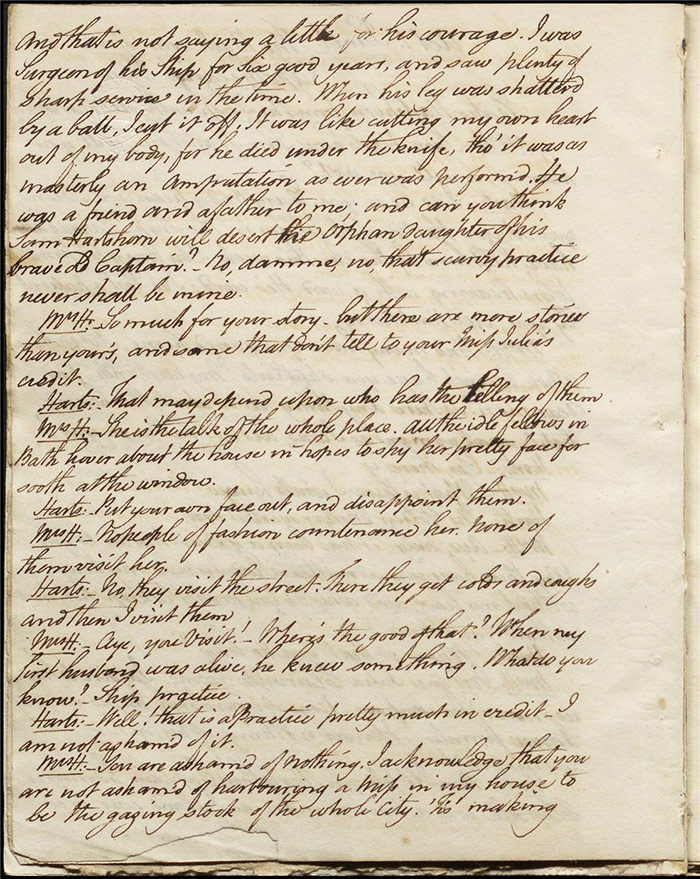 and that is not saying a little for his courage. I was
Surgeon of his Ship for Six good years, and saw plenty of
sharp service in the time. When his leg was shatterd
by a ball, I cut it off, It was like cutting my own heart
out of my body, for he died under the knife, tho' it was as
masterly an amputation as ever was performd. He
was a friend and a father to me; and can you think
Sam Hartshorn will desert the orphan daughter of his
brave Captain? No, damme, no, that scurvy practice
never shall be mine.
Mrs H:- So much for your story - but there are more stories
than your's, and some that don't tell to your Miss Julia's
credit.
Harts:- That may depend upon who has the telling of them.
Mrs H:- She is the talk of the whole place. All the idle fellows in
Bath hover about the house in hopes to spy her pretty face for
sooth at the window.
Harts:- Put your own face out, and disappoint them.
Mrs H:- No people of fashion countenance her. None of
them visit her.
Harts:- No, they visit the street. There they get colds and coughs
and then I visit them
Mrs H:- Aye, you visit! - Where's the good of that? When my
first husband was alive, he knew something. What do you
know? - Ship practice.
Harts:- Well! that is a Practice pretty much in credit - I
am not ashamd of it.
Mrs H:- You are ashamd of nothing. I acknowledge that you
are not ashamd of harbouring a Miss in my house to
be the gazing stock of the whole City. 'Tis making